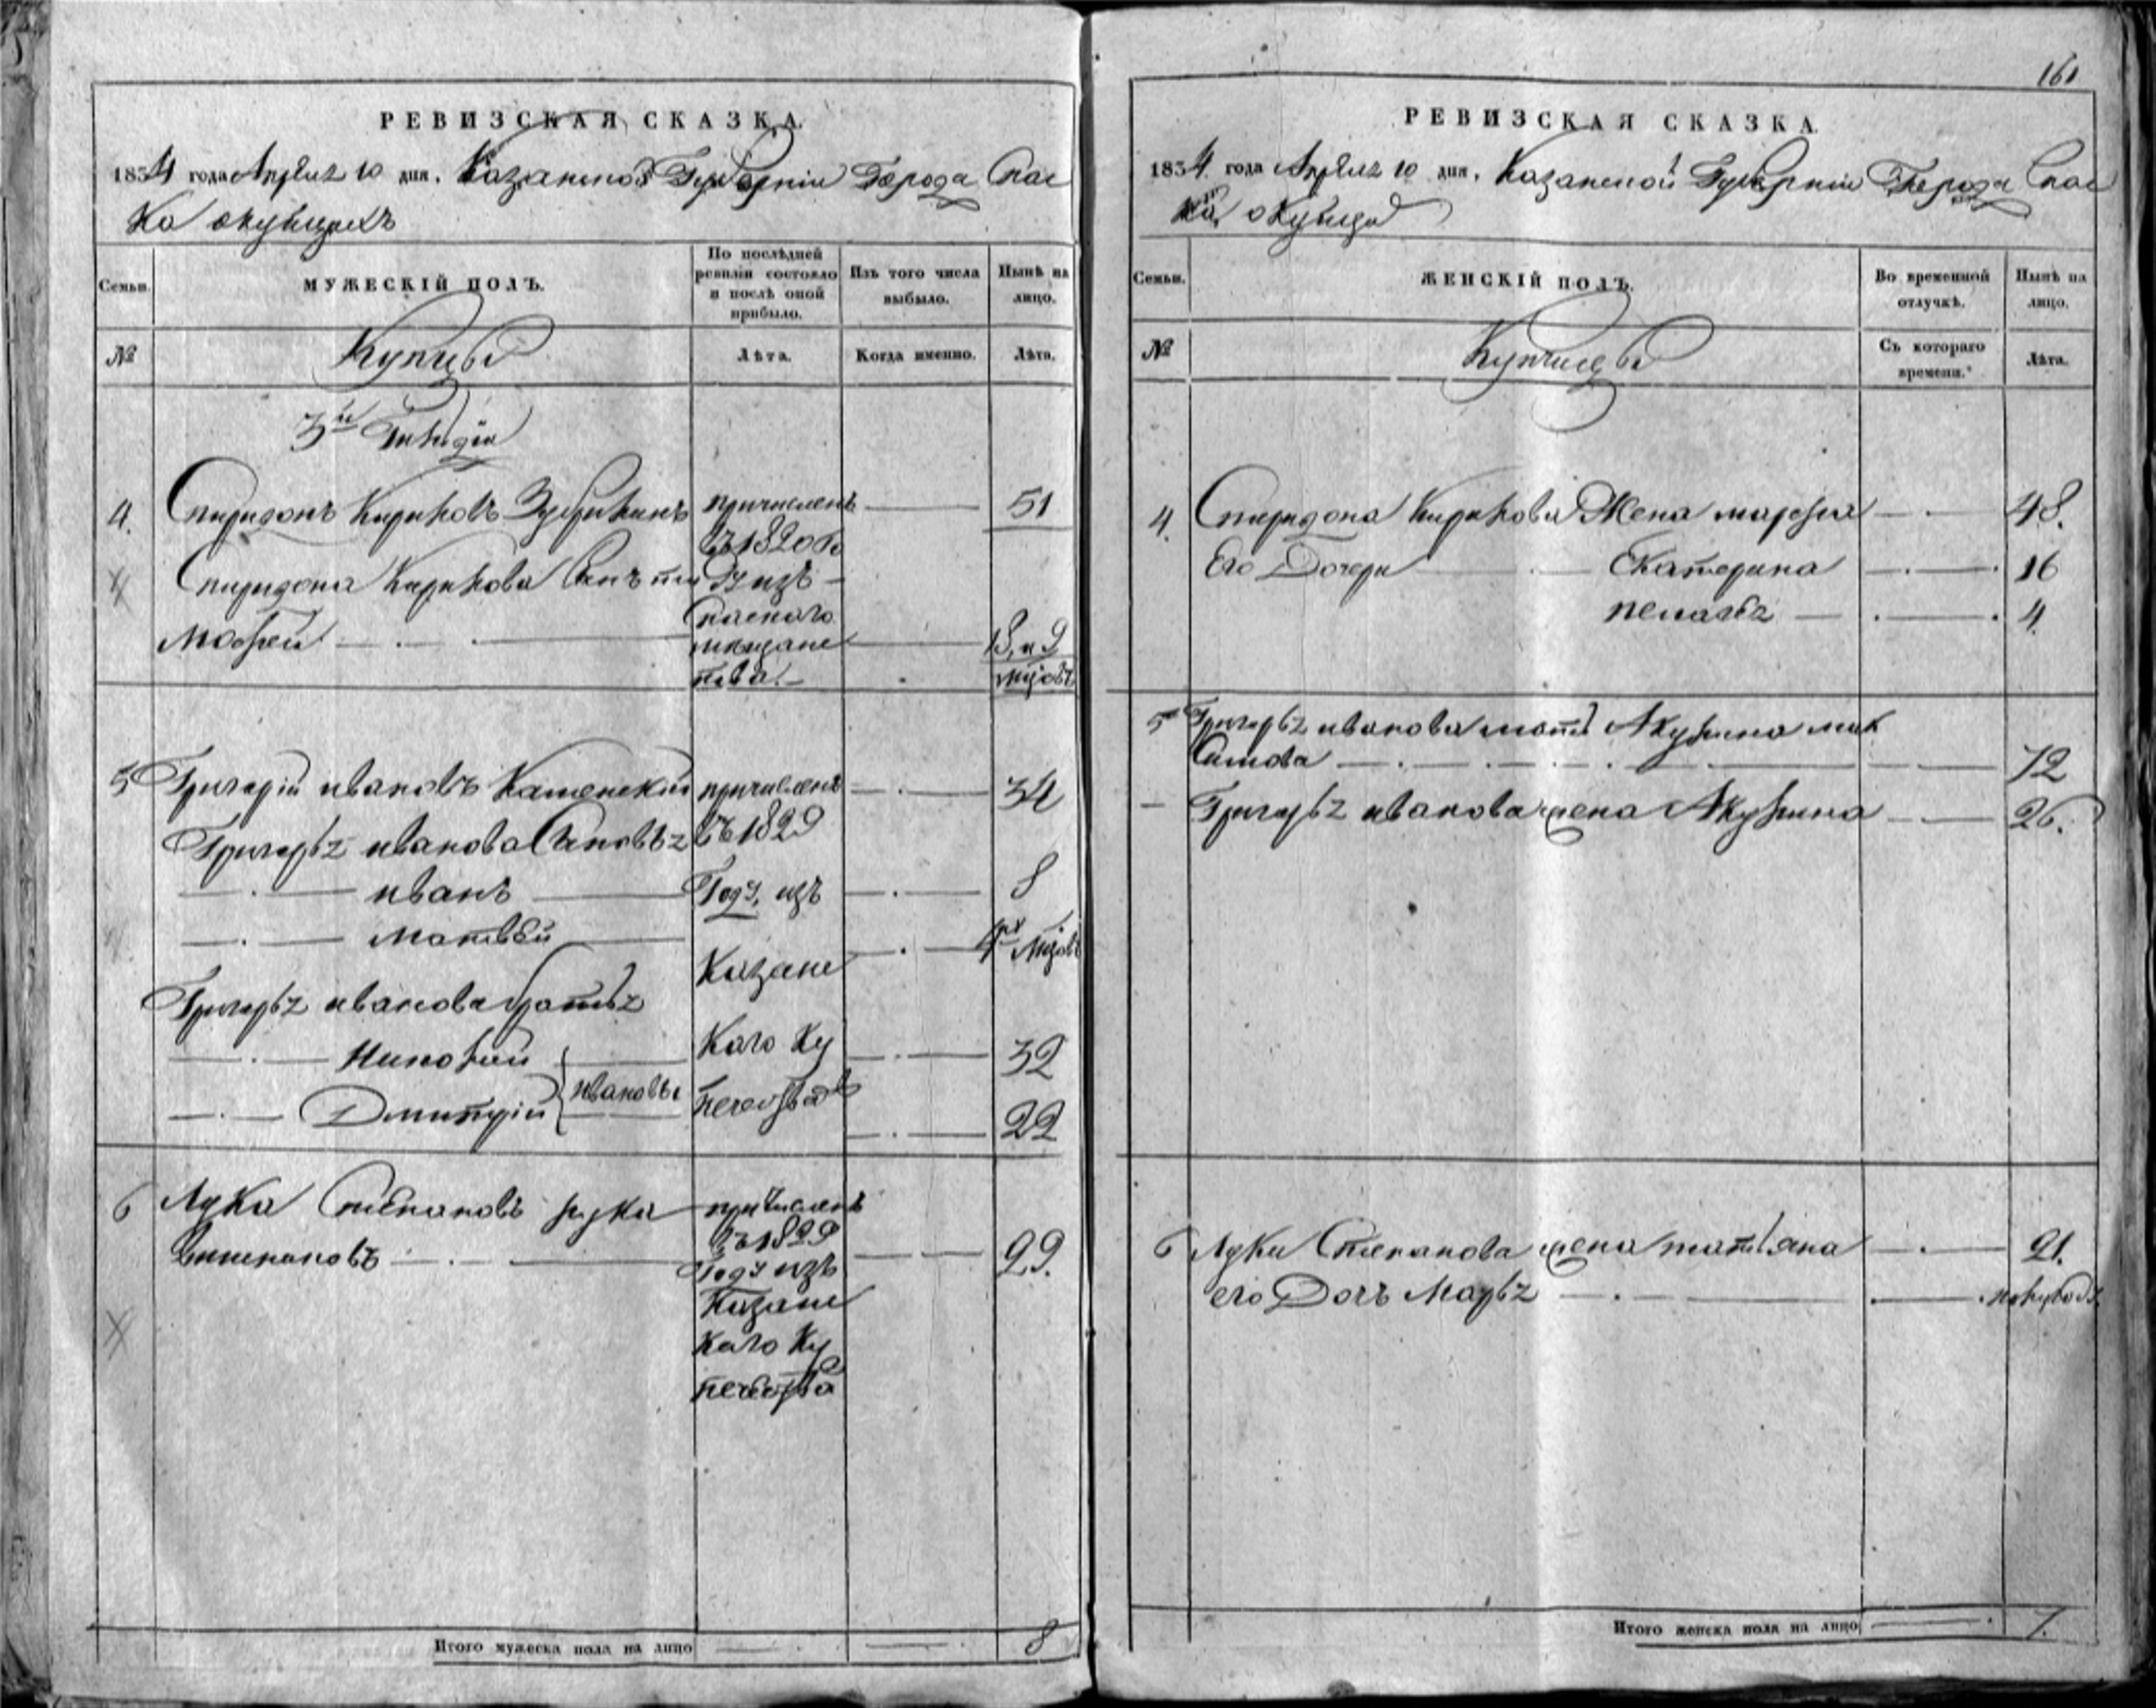 РЕВИЗСКАЯ СКАЗКА.
1834 года Апреля 10 дня. Казанской Губернiи Города Спас
ка окупцахъ
Семьи.
МУЖЕСКIЙ ПОЛЪ.
По послѣдней ревизiи состояло и послѣ оной прибыло.
Изъ того числа выбыло.
Нынѣ на лицо.
№
Купцы
Лѣта.
Когда именно.
Лѣта.
3й Гильдiи
4. Спиридонъ Кириловъ причисленъ 51
въ 1820 Го
Спиридона Кирилова Сынъ ду изъ
Спаскаго
Мосей мещане 13, и 9
ства. мцовъ
5 Григорiй ивановъ Каменскiй причисленъ 34
Григорья иванова Сыновья въ 1829
иванъ Году, изъ 8
Матвѣй 4рх мцовъ
Казане
Григорья иванова братья
Николай каго Ку 32
Дмитрiй ивановы печества 22
6 Лука Степановъ причисленъ
въ 1829
29.
Году изъ
Казане
каго Ку
печества
Итого мужеска пола на лицо 8
161
РЕВИЗСКАЯ СКАЗКА.
1834 года Апреля 10 дня. Казанской Губернiи Города Спас
ка окупца
Семьи.
ЖЕНСКIЙ ПОЛЪ.
Во временной отлучкѣ.
Нынѣ на лицо.
№
Съ котораго времени.
Лѣта.
4. Спиридона Кирилова Жена марфа 48.
Его Дочери Екатерина 16
пелагея 4.
5 Григорья иванова мать Акулина мак
симова 72
Григорья иванова жена Акулина 26.
6 Луки Степанова жена татьяна 21.
его Дочь Марья полугода
Итого женска пола на лицо 7.